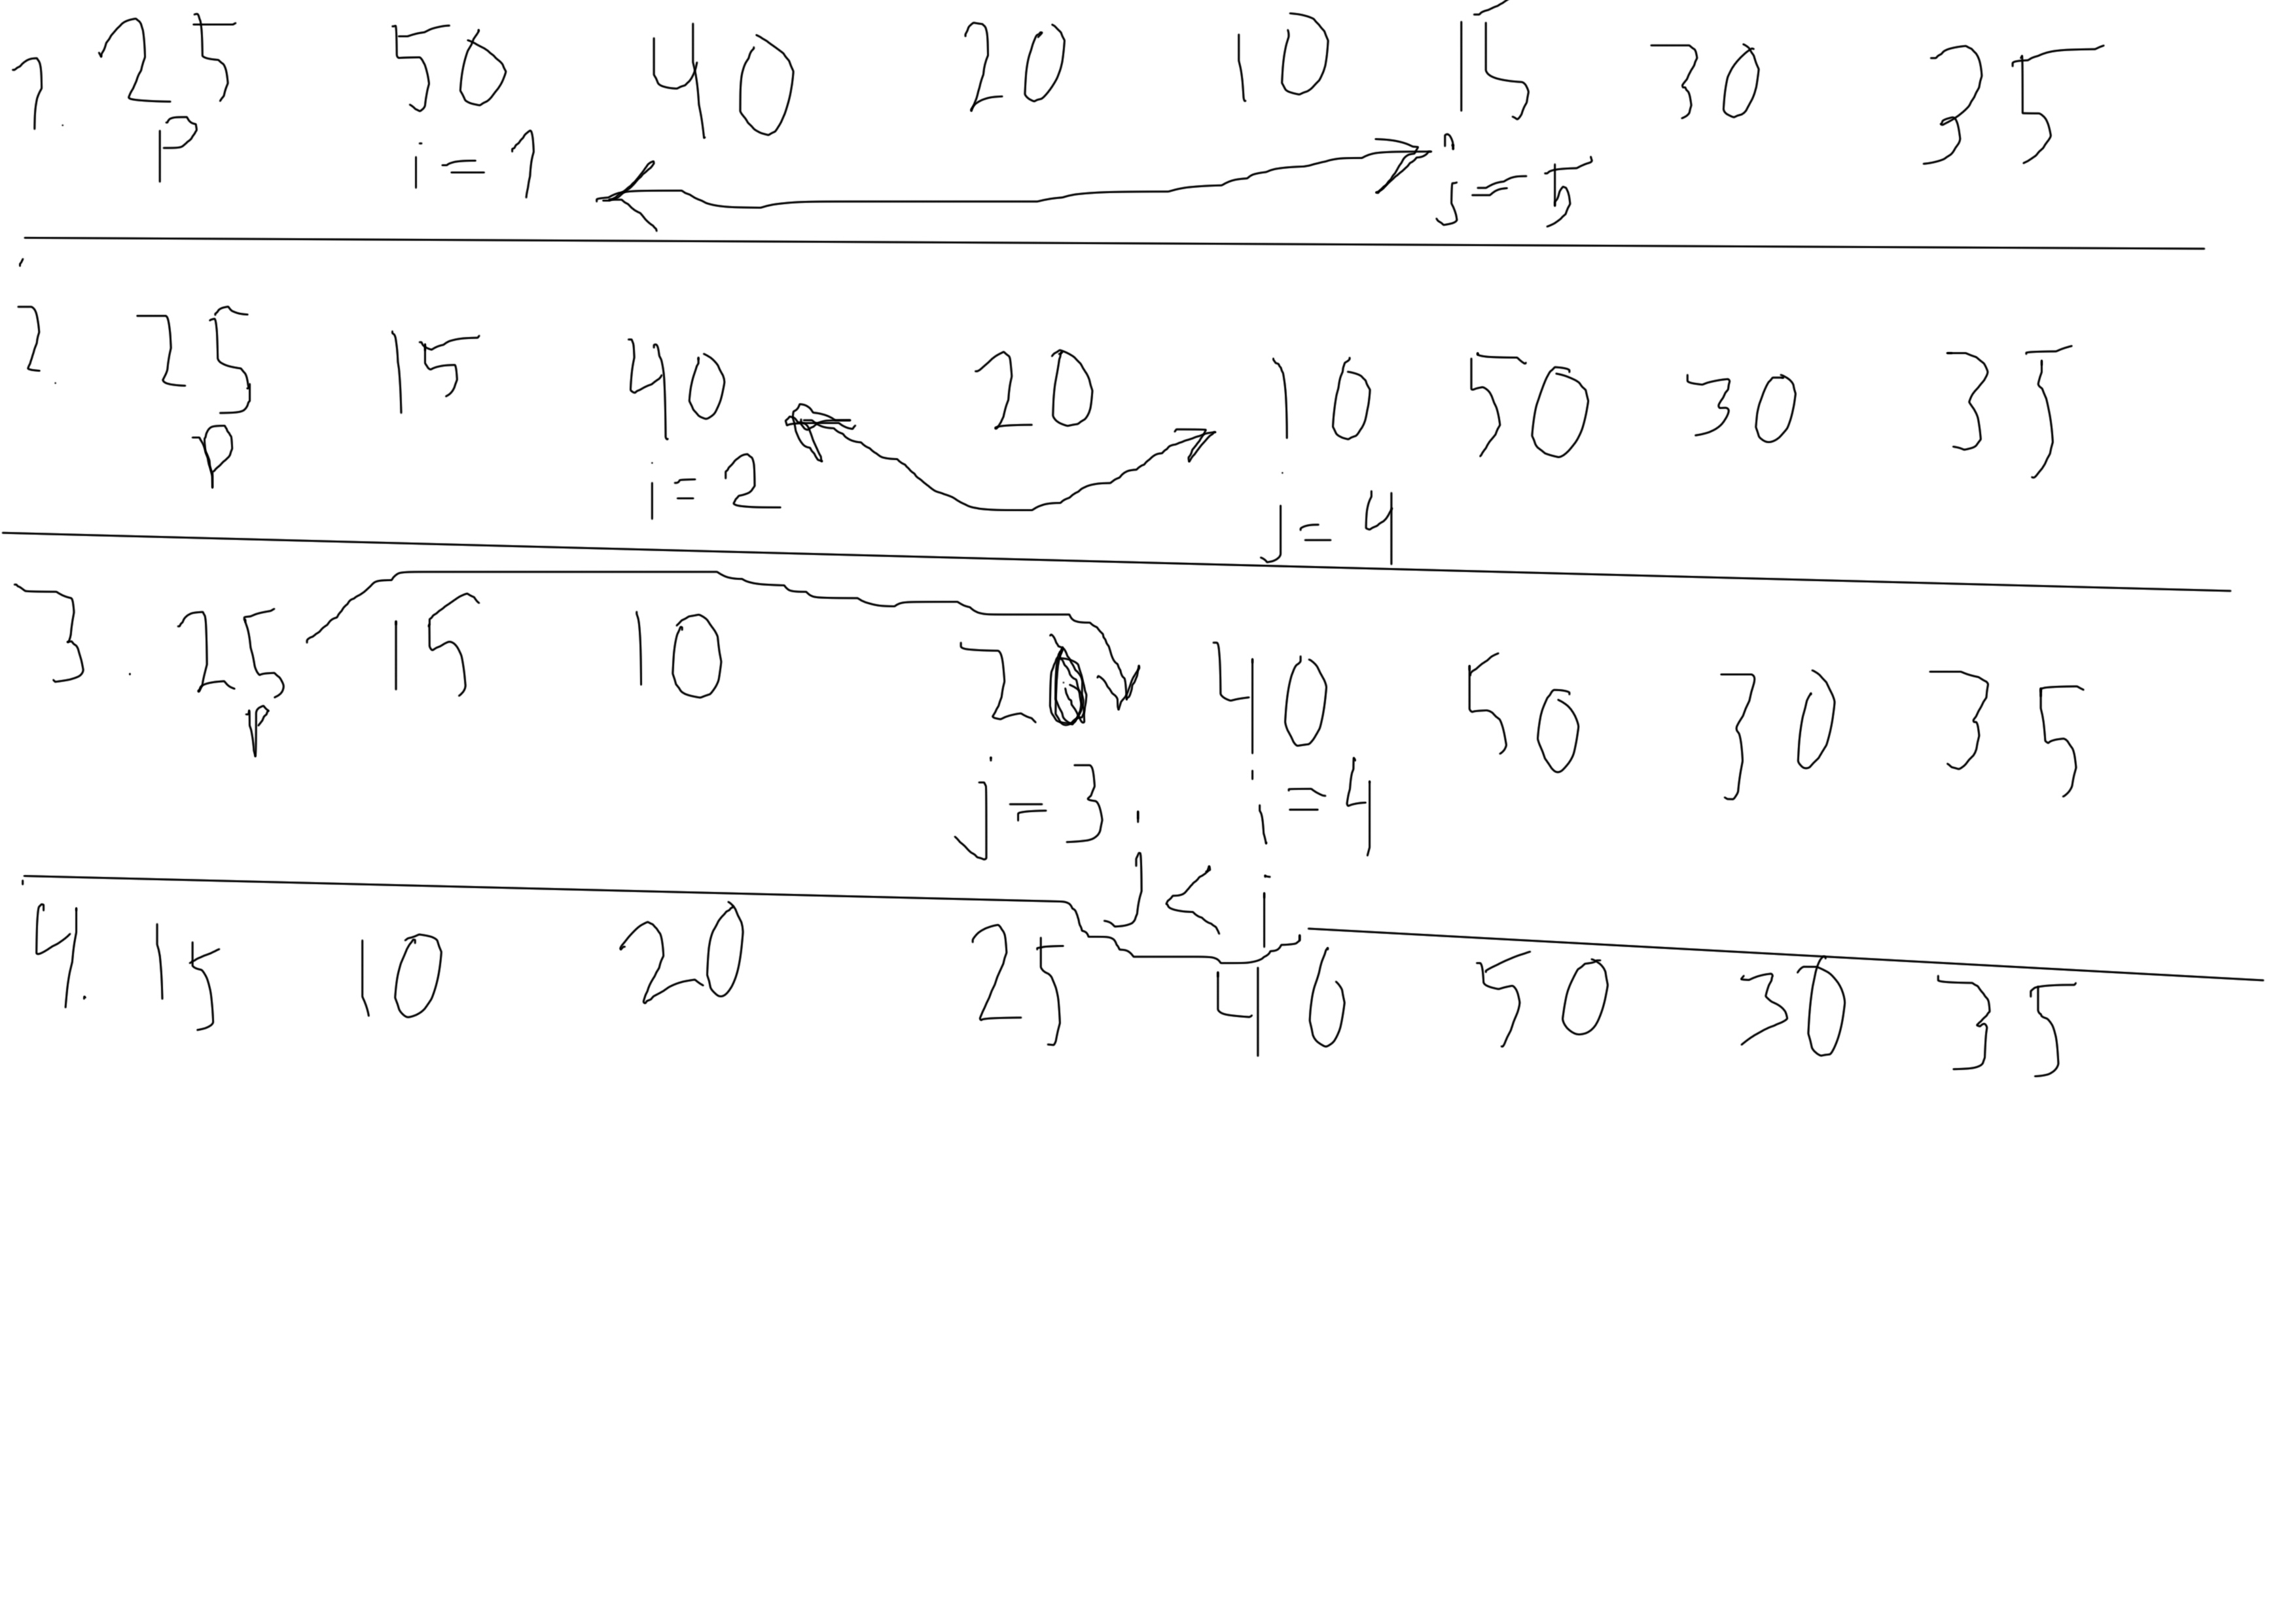 1. 25 50 40 20 10 15 30 35
p i = 1 j = 5
2. 25 15 40 20 10 50 30 35
p i = 2 j = 4
3. 25 15 10 20 40 50 30 35
p j = 3 i = 4
j < i
4. 15 10 20 25 40 50 30 35